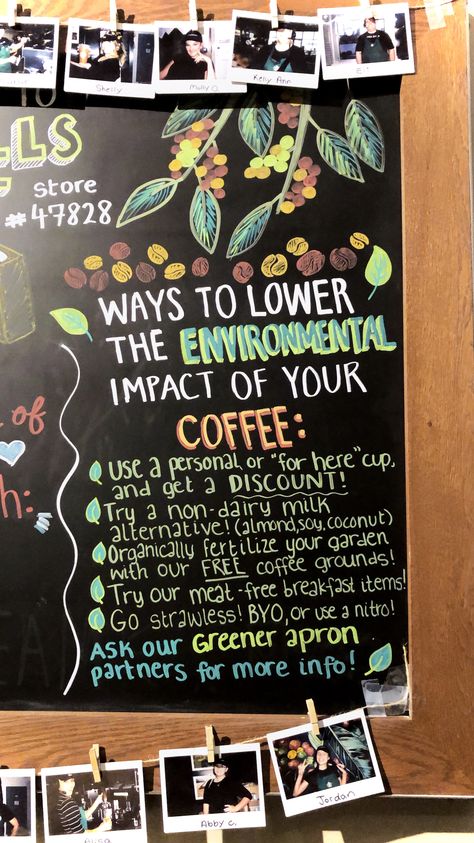 Shelly
Molly O.
Kelly Ann
LLS
store
# 47828
WAYS TO LOWER
THE ENVIRONMENTAL
IMPACT OF YOUR
COFFEE:
Use a personal or "for here" cup,
and get a DISCOUNT!
Try a non-dairy milk
alternative! (almond, soy, coconut)
Organically fertilize your garden
with our FREE coffee grounds!
Try our meat-free breakfast items!
Go strawless! BYO, or use a nitro!
ASK our Greener apron
partners for more info!
of
h:
Abby C.
Jordan